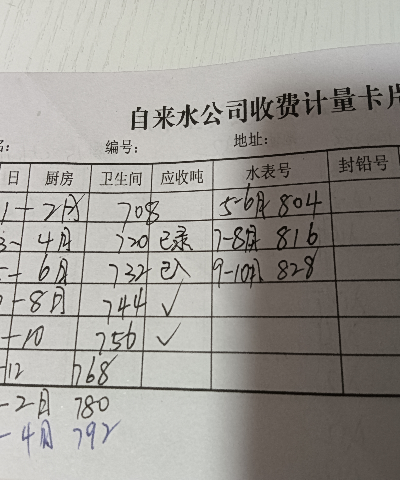 自来水公司收费计量卡片
名： 编号： 地址：
日 厨房 卫生间 应收吨 水表号 封铅号
1-2月 708 5-6月 804
3-4月 720 已录 7-8月 816
5-6月 732 已入 9-10月 828
7-8月 744 ✓
-10 756 ✓
-12 768
-2月 780
-4月 792